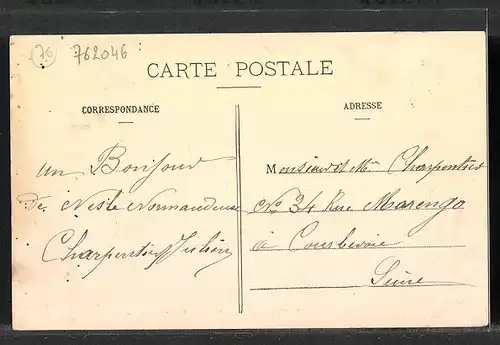 76 762046
CARTE POSTALE
CORRESPONDANCE
ADRESSE
un Bonjour
de Nesle Normandeuse
Charpentier Julien
Monsieur et Mme Charpentier
No 34 Rue Marengo
à Courbevoie
Seine